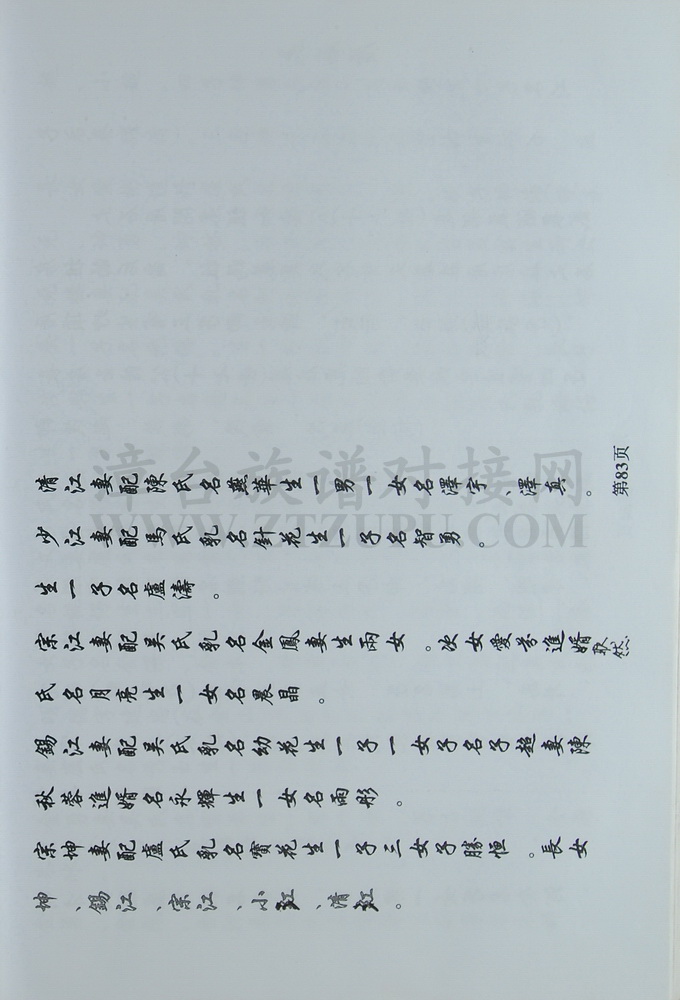 坤、錫江、宗江、小紅、清紅。
宗坤妻配盧氏乳名寶花生一子三女子勝恒。長女
秋蓉進婿名永輝生一女名雨彤。
錫江妻配吴氏乳名幼花生一子一女子名子超妻陳
氏名月亮生一女名晨晶。
宗江妻配吴氏乳名金鳳妻生兩女。次女愛芬進婿
生一子名盧濤。
少江妻配馬氏乳名針花生一子名智勇。
清江妻配陳氏名燕華生一男一女名澤宇、澤真。
第83页
漳台族谱对接网
WWW.ZTZUPU.COM